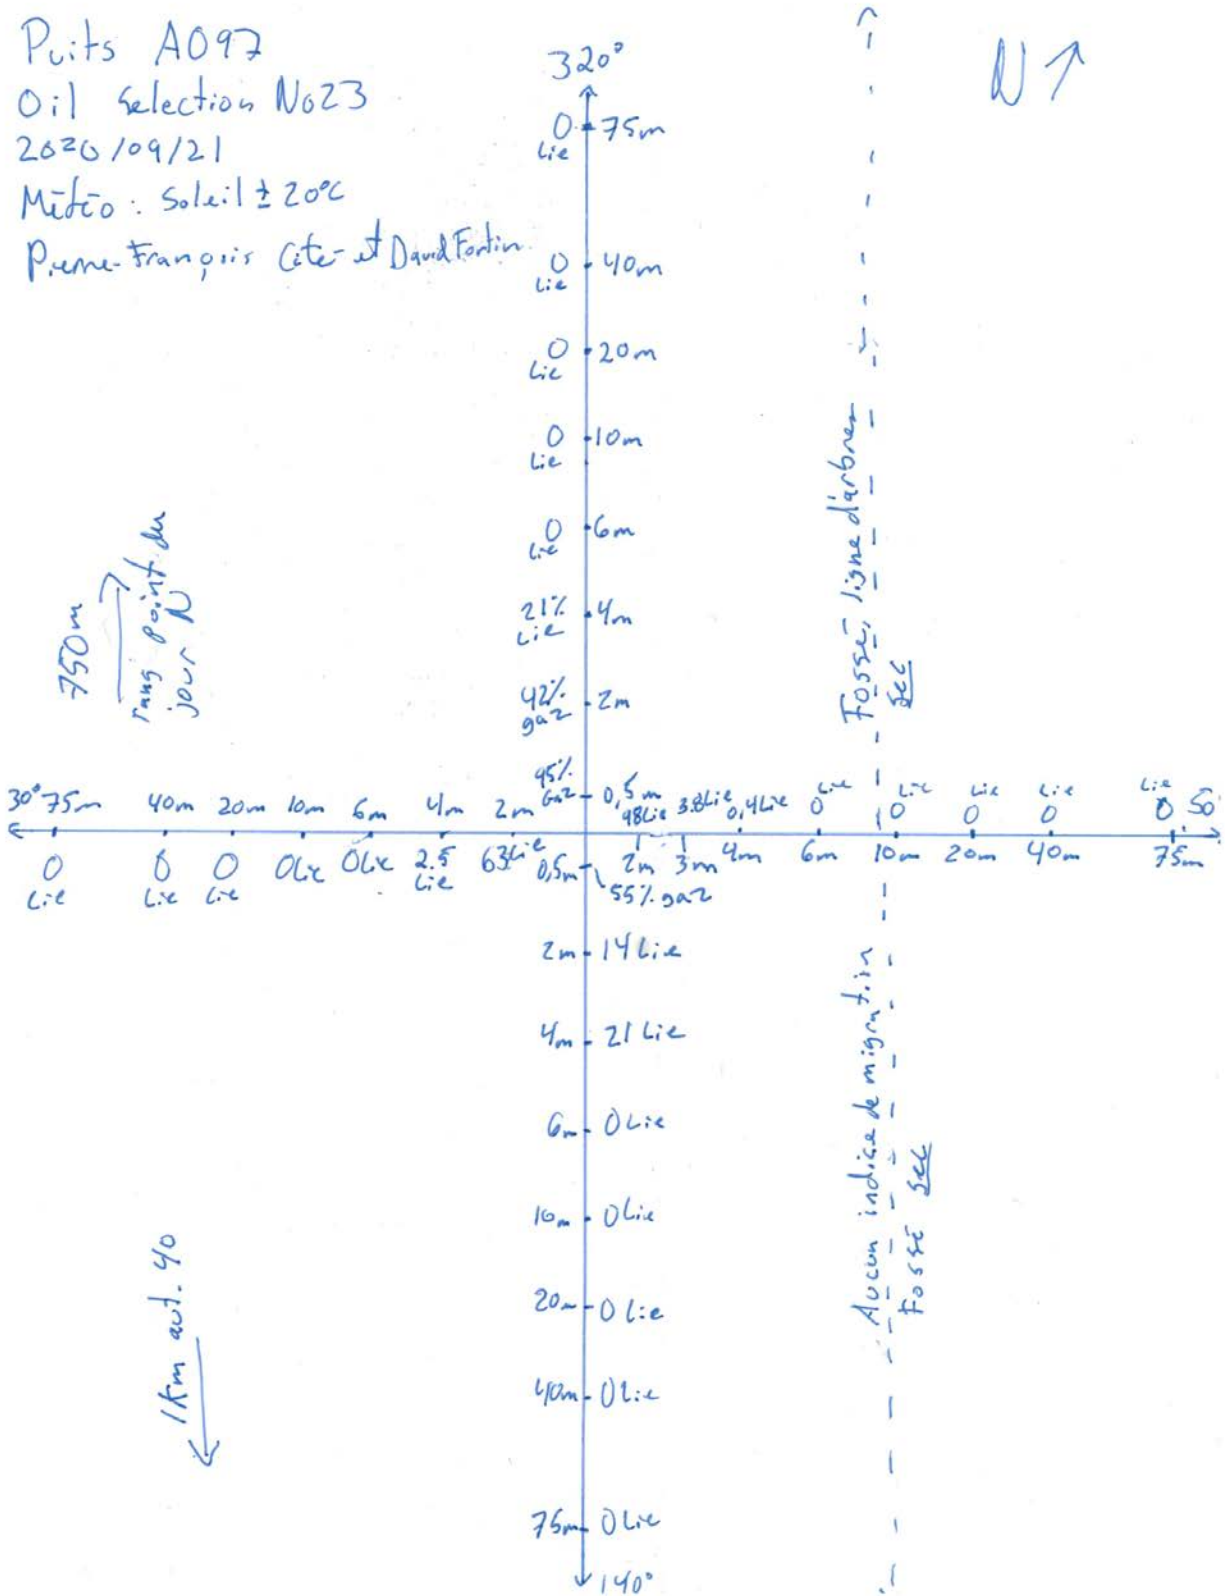 Puits A097
Oil Selection No23
2020/09/21
Météo : Soleil ± 20°C
Pierre-François Côté et David Fortin
N
320°
0 75m
Lie
0 40m
Lie
0 20m
Lie
0 10m
Lie
0 6m
Lie
21% 4m
Lie
42% 2m
gaz
95% 0,5m
Gaz
Fossé, ligne d'arbres
sec
750m
rang point du
jour N
30° 75m 40m 20m 10m 6m 4m 2m
0 0 0 0Lie 0Lie 2.5 63Lie
Lie Lie Lie Lie
98Lie 3.8Lie 0,4Lie 0 Lie 0 Lie 0 Lie 0 Lie 0 Lie 50
2m 3m 4m 6m 10m 20m 40m 75m
0,5m 55% gaz
2m 14 Lie
4m 21 Lie
6m 0 Lie
10m 0 Lie
20m 0 Lie
40m 0 Lie
75m 0 Lie
140°
Aucun indice de migration
Fossé sec
1Km aut. 40